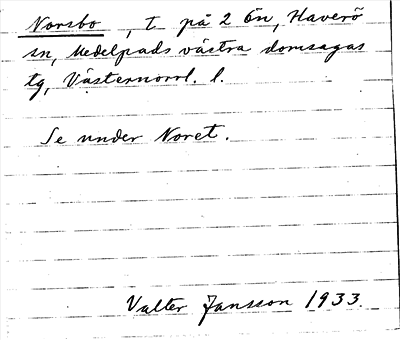 Norsbo, t. på 2 Ön, Haverö
sn, Medelpads västra domsagas
tg, Västernorrl. l.
Se under Noret.
Valter Jansson 1933.